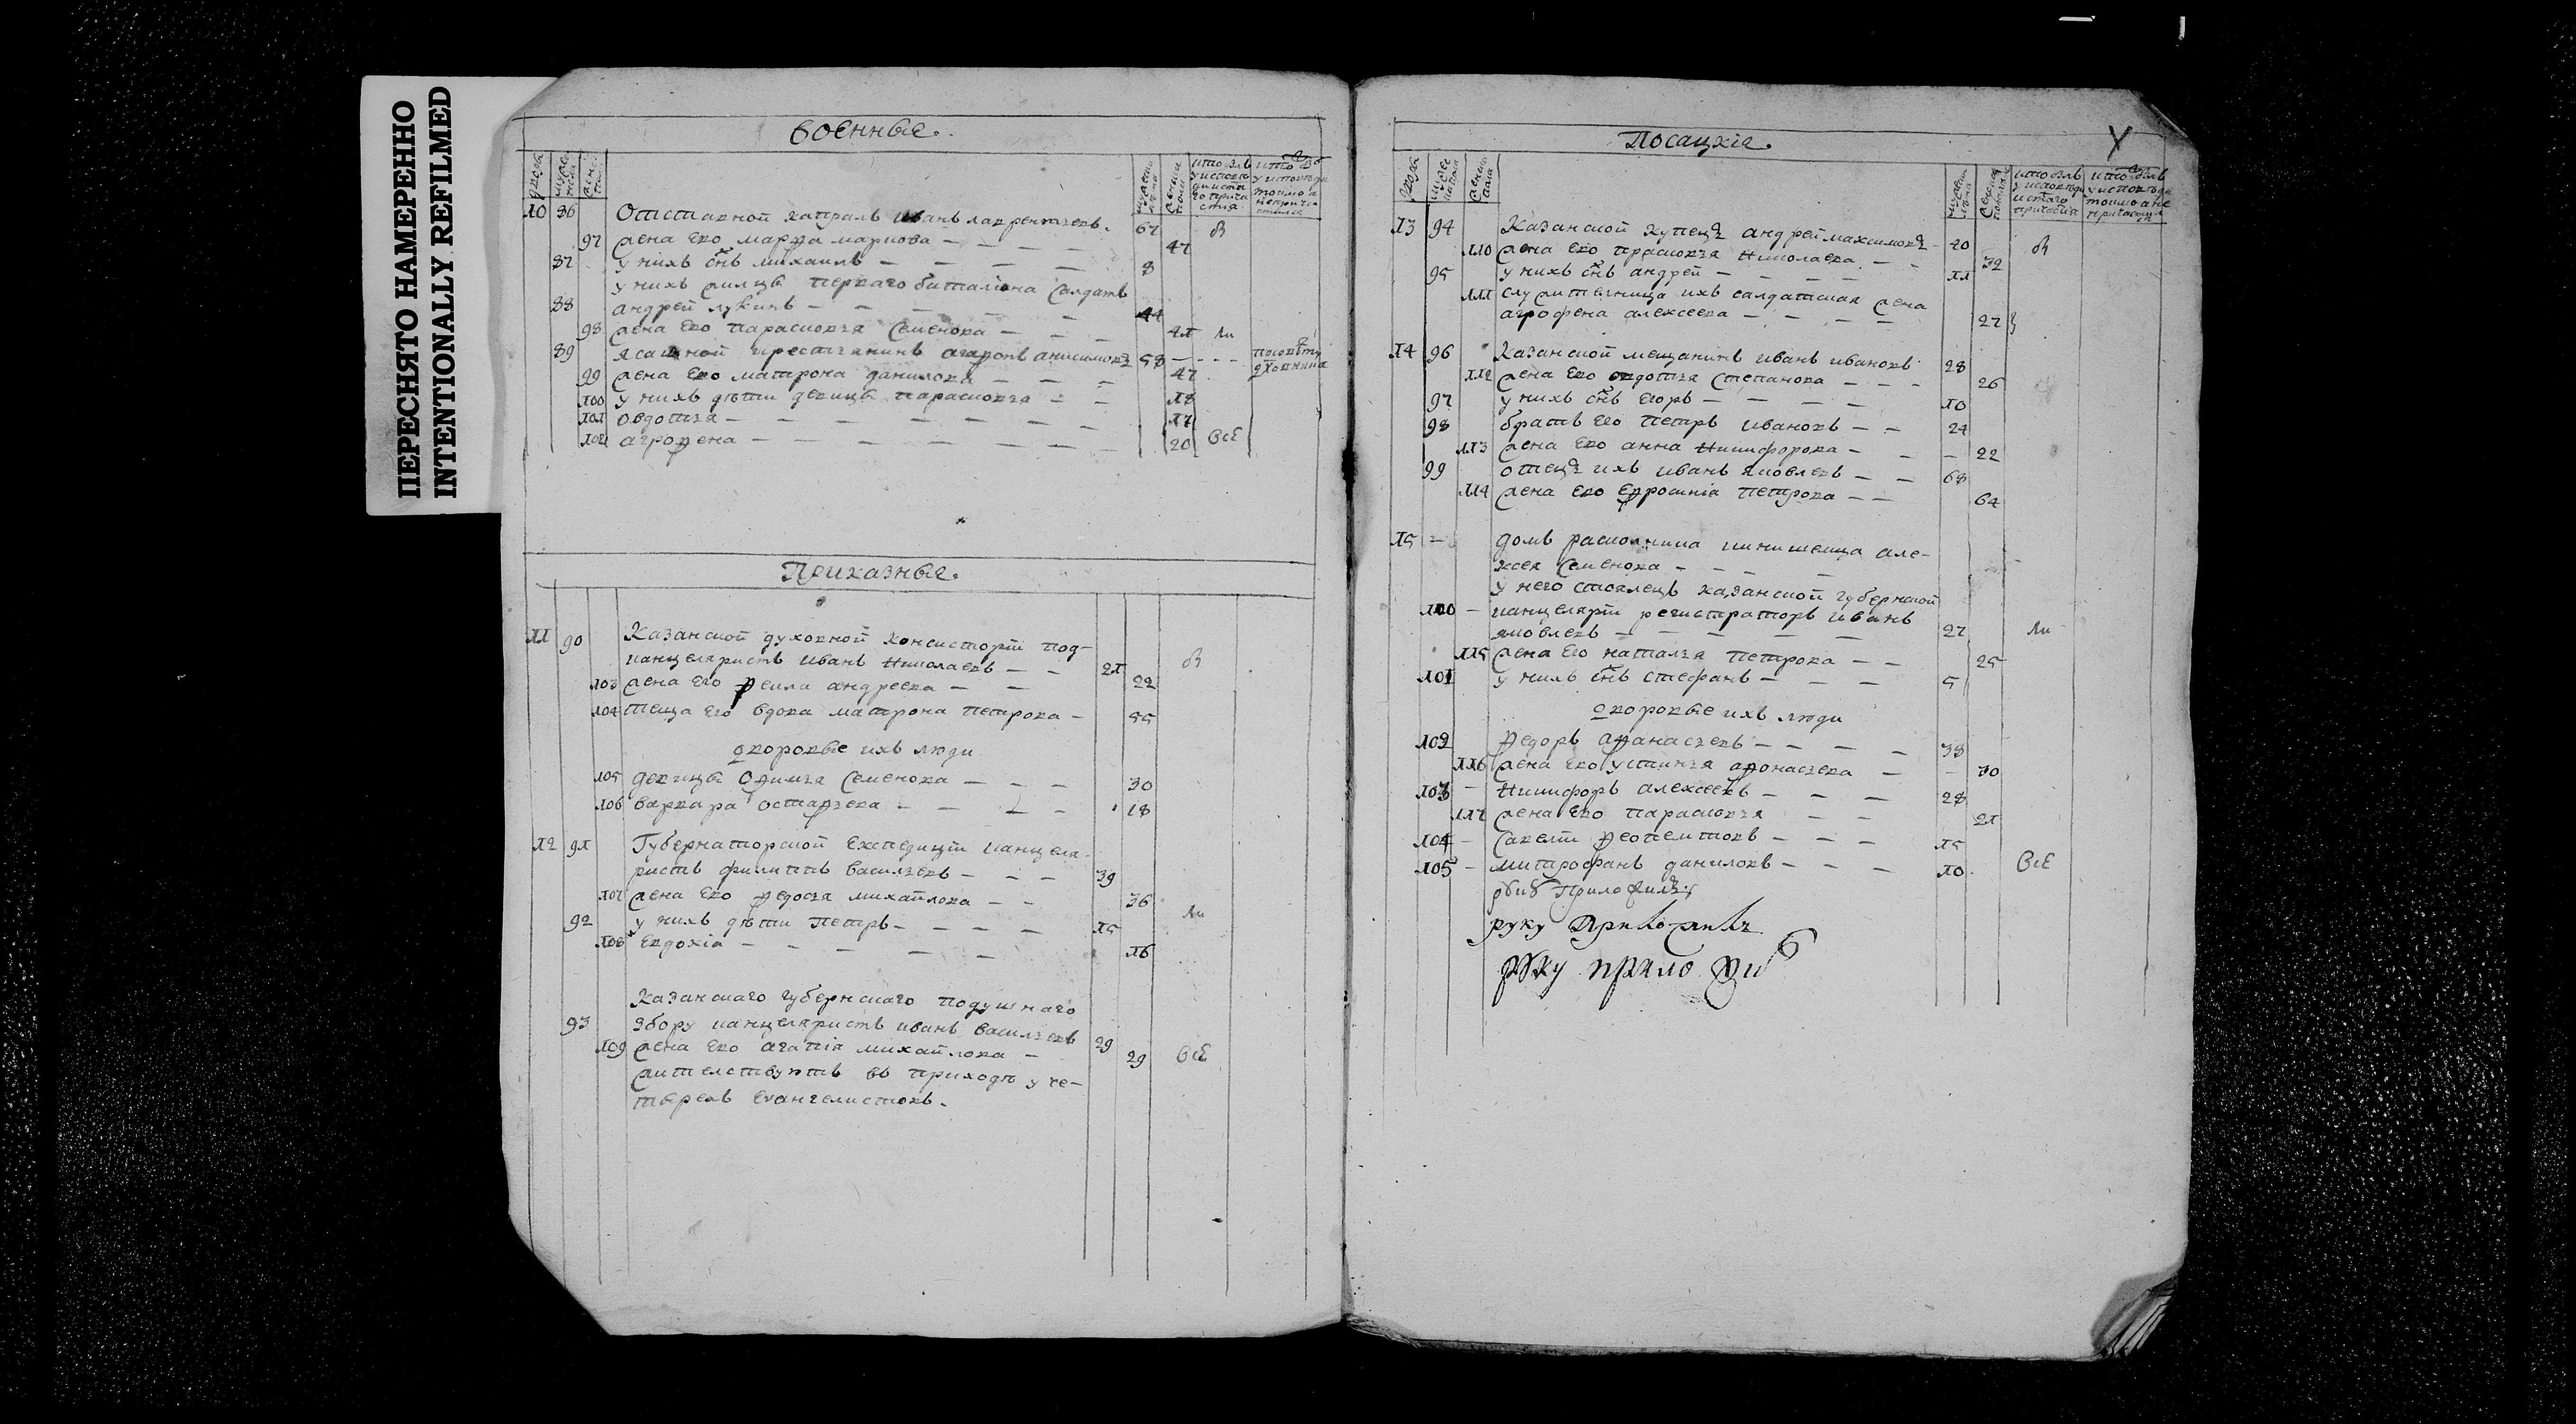 ПЕРЕСНЯТО НАМЕРЕННО
INTENTIONALLY REFILMED
военные.
10 86 Отставной капралъ иванъ лаврентьевъ. 67 вı
97 жена ево марфа маркова — — — — 47
87 у нихъ снъ михаилъ — — — — 8
у нихъ жилцы перваго баталiона салдатъ
88 андрей лукинъ — — — — 44
98 жена ево парасковья семенова — — 41
89 ясашной крестьянинъ агаронъ анисимовъ 58 — - - -
99 жена ево матрона данилова — — — 47
100 у нихъ дѣти девицы парасковья — — 18
101 овдотья — — — — — — — 17
102 агрофена — — — — — — — 20 всѣ
Приказные.
11 90 Казанской духовной консисторiи под-
канцеляристъ иванъ николаевъ — — 21
103 жена его фекла андреева — — 22
104 теща его вдова матрона петрова — 55
дворовые ихъ люди
105 девицы офимья семенова — — — 30
106 варвара остафьева — — — — 18
12 91 Губернаторской експедицiи канцеля-
ристъ филиппъ васильевъ — — — 39
107 жена ево федосья михайлова — — 36
92 у нихъ дѣти петръ — — — — 15
108 евдокiа — — — — — 16
Казанскаго губернскаго подушнаго
93 збору канцеляристъ иванъ васильевъ 29
109 жена ево агапiа михайлова — 29 всѣ
жителствуютъ въ приходѣ у че-
тырехъ евангелистовъ.
Посацкiе.
13 94 Казанской купецъ андрей максимовъ — 40
110 жена ево прасковья николаева — — 32
95 у нихъ снъ андрей — — — — 11
111 служителница ихъ салдатская жена
агрофена алексеева — — — — 27
14 96 Казанской мещанинъ иванъ ивановъ 28
112 жена ево овдотья степанова — — — 26
97 у нихъ снъ егоръ — — — — 10
98 братъ его петръ ивановъ — — 24
113 жена ево анна никифорова — — — 22
99 отецъ ихъ иванъ яковлевъ — — 68
114 жена ево ефросинiа петрова — — 64
15 — домъ раскольника кинишемца але-
ксея семенова — — — —
у него стоялецъ казанской губернской
100 — канцелярiи регистраторъ иванъ
яковлевъ — — — — — 27
115 жена его наталья петрова — — 25
101 у нихъ снъ стефанъ — — — 5
дворовые ихъ люди
102 федоръ афанасьевъ — — — — 38
116 жена ево устинья афонасьева — — 30
103 — никифоръ алексеевъ — — — 28
117 жена ево парасковья — — 21
104 — савелiй феопемптовъ — — — 15
105 — митрофанъ даниловъ — — — 10 всѣ
руку приложилъ
руку приложилъ
руку приложи